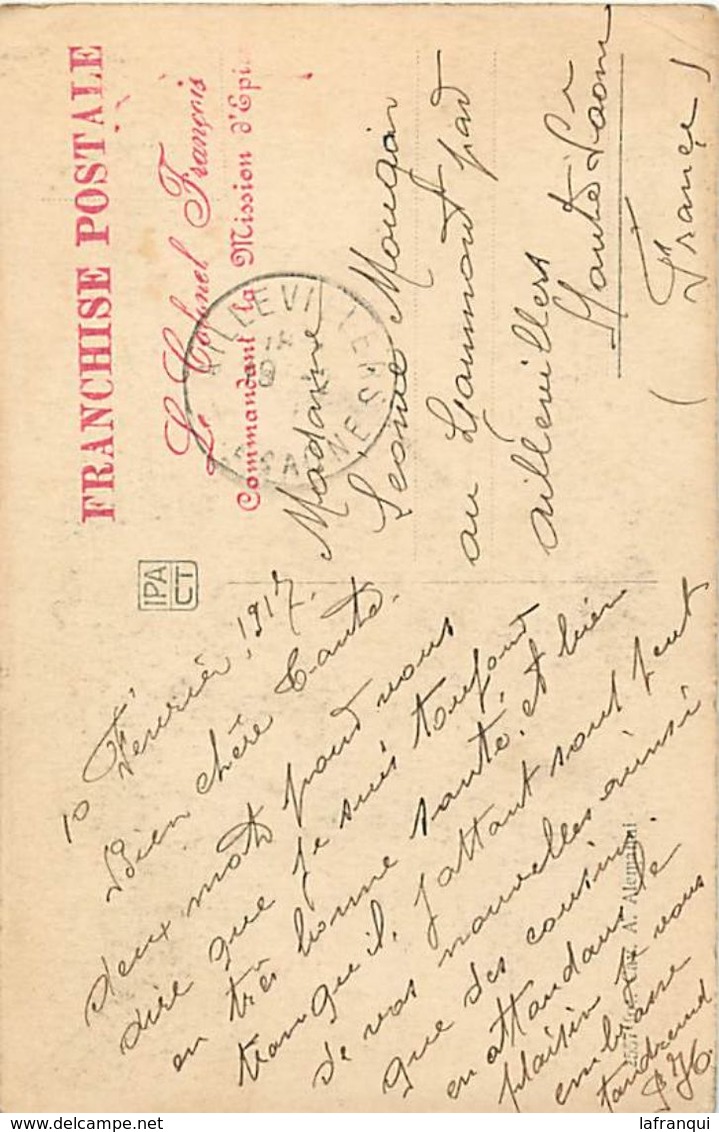 FRANCHISE POSTALE
Le Colonel Français
Commandant la Mission d'Epi
AILLEVILLERS
HTE SAONE
IPA
CT
Madame
Leonie Mougin
au Gaumont par
aillevillers
Haute Saone
(France)
10 Fevrier, 1917.
Bien chère Tante.
deux mots pour vous
dire que je suis toujour
en très bonne santé, et bien
tranquil, j'attant sont peut
de vos nouvelles ainsi
que des cousin.
en attandans le
plaisir je vous
embrasse
tandremd
A. Alemanni
lafranqui